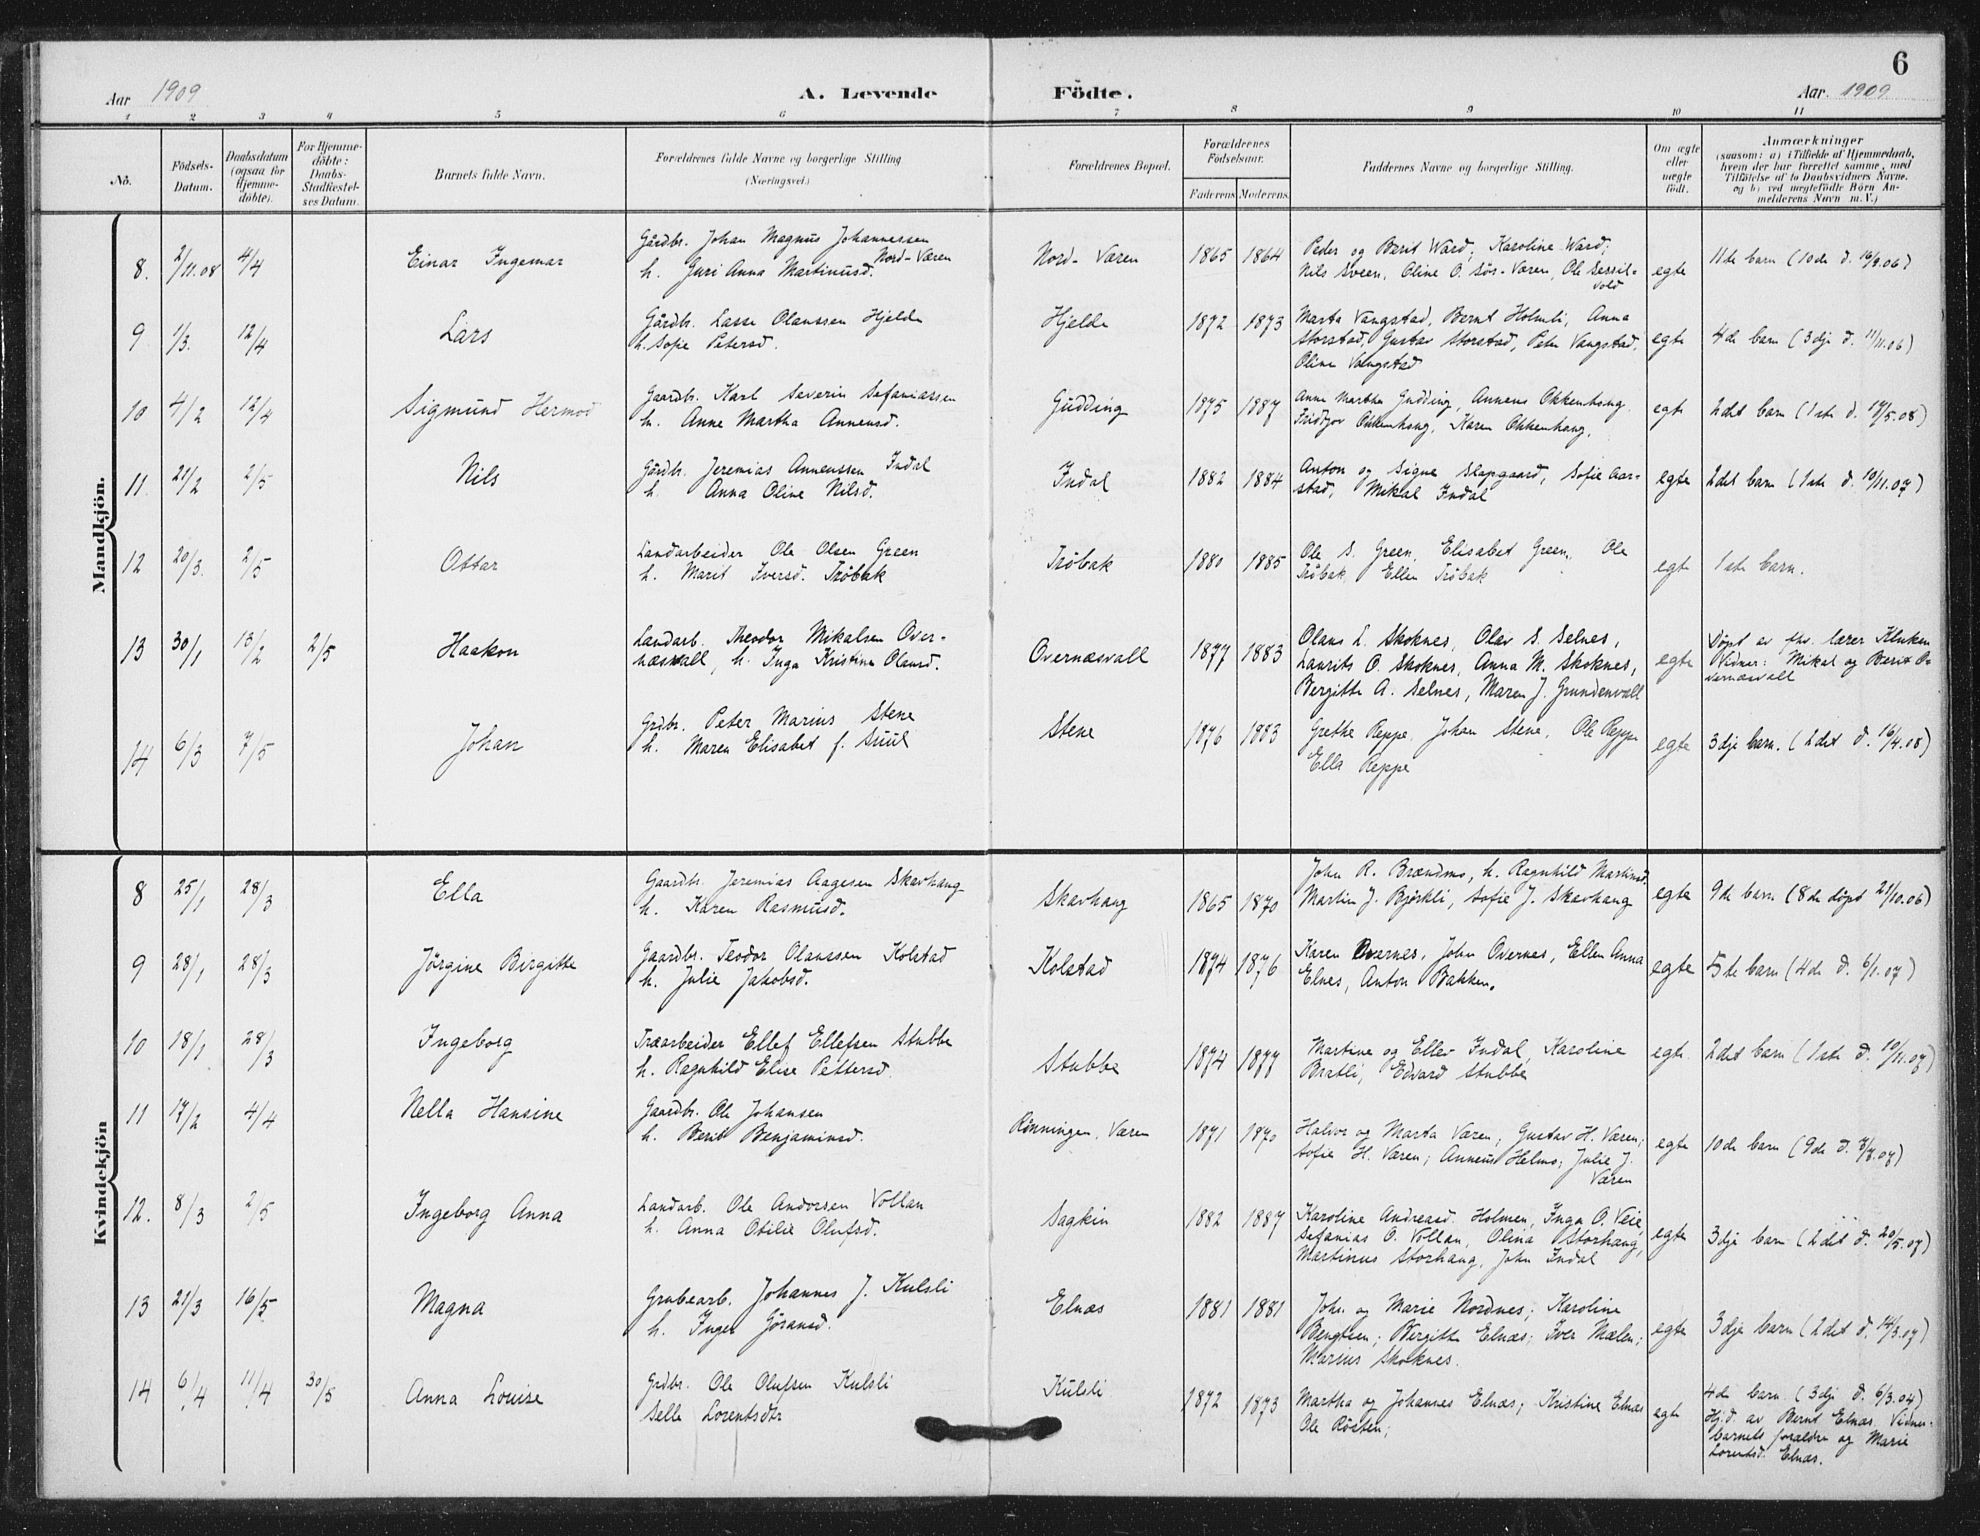 6
Aar 1909 A. Levende Födte. Aar. 1909
1 2 3 4 5 6 7 8 9 10 11
Nô.
Födsels-
Datum.
Daabsdatum
(ogsaa for
Hjemme-
döbte).
For Hjemme-
döbte:
Daabs-
Stadfæstel-
ses Datum.
Barnets fulde Navn.
Forældrenes fulde Navne og borgerlige Stilling
(Næringsvei.)
Forældrenes Bopæl.
Forældrenes
Födselsaar.
Faderens Moderens
Faddernes Navne og borgerlige Stilling.
Om ægte
eller
uægte
födt.
Anmærkninger
(saasom: a) i Tilfælde af Hjemmedaab,
hvem der har forrettet samme, med
Tilföielse af to Daabsvidners Navne.
og b) ved uægtefödte Börn An-
melderens Navn m. V.)
Mandkjön.
8. 2/11.08 4/4 Einar Ingemar
Gårdbr. Johan Magnus Johannessen
Nord-Væren
h. Guri Anna Martinusd.
Nord-Væren 1865 1864
Peder og Berit Ward; Karoline Ward;
Nils Sveen, Oline O. Sör-Væren, Ole Sessil-
vold
egte 11de barn (10de d. 16/9.06)
9 1/3. 12/4 Lars
Gårdb. Lasse Olaussen Hjelde
h. Sofie Petersd.
Hjelde 1872 1873
Marta Vangstad, Bernt Holmli, Anna
Storstad, Gustav Storstad, Peter Vangstad,
Oline Vangstad
egte 4de barn (3dje d. 11/11.06)
10 4/2 12/4 Sigmund Hermod
Gaardb. Karl Severin Sefaniassen
h. Anne Martha Annæusd.
Gudding 1875 1887
Anne Martha Gudding, Annæus Okkenhaug,
Fridtjov Okkenhaug, Karen Okkenhaug.
egte 2det barn (1ste d. 17/5.08)
11. 21/2 2/5 Nils
Gårdb. Jeremias Annæussen Indal
h. Anna Oline Nilsd.
Indal 1882 1884
Anton og Signe Slapgaard, Sofie Aar-
stad, Mikal Indal
egte 2det barn (1ste d. 10/11.07)
12 20/3. 2/5 Ottar
Landarbeider Ole Olsen Green
h. Marit Iversd. Tröbak
Tröbak 1880 1885
Ole S. Green, Elisabet Green, Ole
Tröbak, Ellen Tröbak
egte 1ste barn.
13 30/1 13/2 2/5 Haakon
Landarb. Theodor Mikalsen Over-
næsvall, h. Inga Kristine Olausd.
Overnæsvall 1877 1883
Olaus L. Skoknes, Olav S. Selnes,
Laurits O. Skoknes, Anna M. Skoknes,
Bergitte A. Selnes, Maren J. Grundenvall
egte
Döpt av fhv. lærer Kluken
Vidner: Mikal og Berit O-
vernæsvall
14 6/3 7/5 Johan
Grdbr. Peter Marius Stene
h. Maren Elisabet f. Suul
Stene 1876 1883
Grethe Reppe, Johan Stene, Ole Reppe
Ella Reppe
egte 3dje barn. (2det d. 16/4.08)
Kvindekjön
8 25/1 28/3 Ella
Gaardbr. Jeremias Aagesen Skavhaug
h. Karen Rasmusd.
Skavhaug 1865 1870
John R. Brændmo, h. Ragnhild Martinsd.
Martin J. Björkli, Sofie J. Skavhaug
egte 9de barn (8de döpt 21/10.06)
9 28/1 28/3 Jörgine Birgitte
Gaardbr. Teodor Olaussen Kolstad
h. Julie Jakobsd.
Kolstad 1874 1876
Karen Overnes, John Overnes, Ellen Anna
Elnes, Anton Bakken.
egte 5te barn (4de d. 6/1.07)
10 18/1 28/3 Ingeborg
Træarbeider Ellef Ellefsen Stubbe
h. Ragnhild Elise Pettersd.
Stubbe 1874 1877
Martine og Ellev Indal, Karoline
Bratli, Edvard Stubbe
egte 2det barn (1ste d. 10/11.07)
11 17/2 4/4 Nella Hansine
Gaardbr. Ole Johansen
h. Berit Benjaminsd.
Rönningen, Væren 1871 1870
Halvor og Marta Væren; Gustav H. Væren;
Sofie H. Væren; Annæus Helmo; Julie J.
Væren
egte 10de barn (9de d. 7/7.07)
12. 8/3 2/5 Ingeborg Anna
Landarb. Ole Andorsen Vollan
h. Anna Otilie Olufsd.
Sagkin 1882 1887
Karoline Andreasd. Holmen, Inga O. Veie,
Sefanias O. Vollan, Olina Storhaug,
Martinus Storhaug, John Indal
egte 3dje barn (2det d. 20/5.07)
13 21/3 16/5 Magna
Grubearb. Johannes J. Kulsli
h. Inger Göransd.
Elnæs 1881 1881
Johs. og Marie Nordnes; Karoline
Bengtsen; Bergitte Elnæs; Iver Mælen;
Marius Skoknes.
egte 3dje barn (2det d. 14/3.07)
14 6/4 11/4 30/5 Anna Louise
Grdbr. Ole Olufsen Kulsli
Selle Lorentsdtr
Kulsli 1872 1873
Martha og Johannes Elnæs; Kristine Elnæs
Ole Rösten;
egte
4de barn (3dje d. 6/3.04)
Hj.d. av Bernt Elnæs. Vidner:
barnets forældre og Marie
Lorentsd. Elnæs.